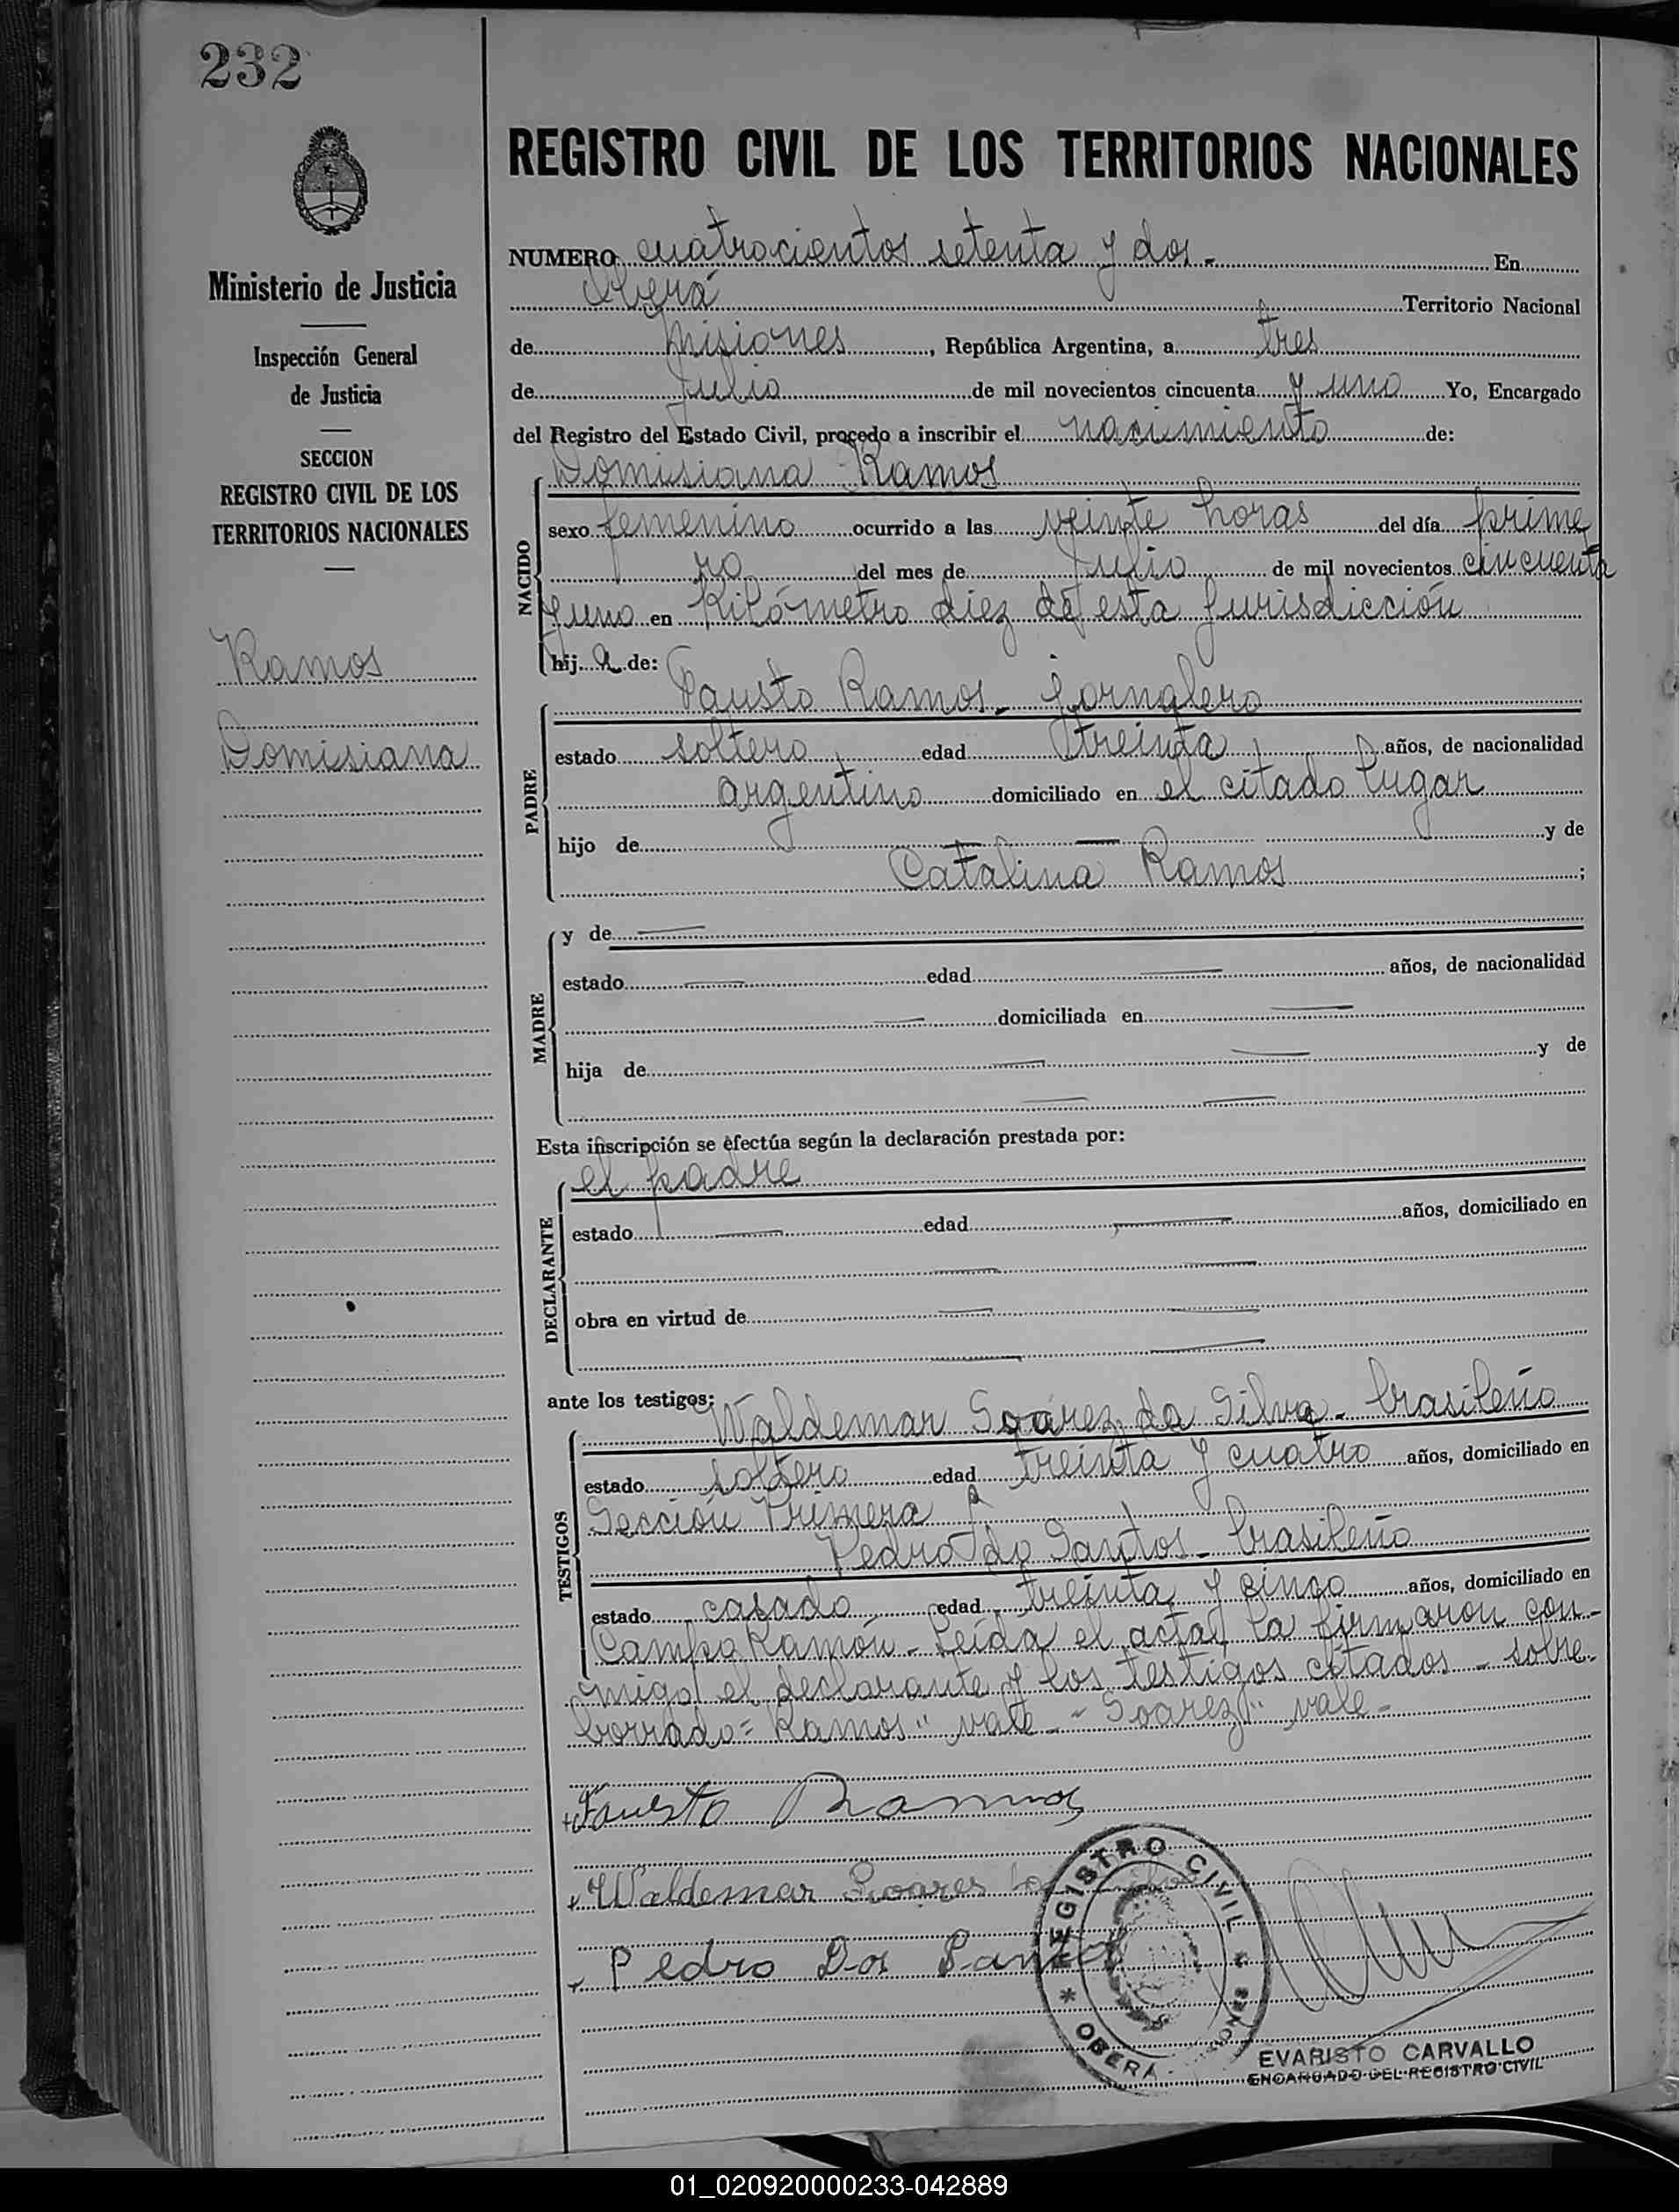 232
Ministerio de Justicia
Inspección General
de Justicia
SECCION
REGISTRO CIVIL DE LOS
TERRITORIOS NACIONALES
Ramos
Domisiana
REGISTRO CIVIL DE LOS TERRITORIOS NACIONALES
NUMERO cuatrocientos setenta y dos.- En
Oberá Territorio Nacional
de Misiones, República Argentina, a tres
de Julio de mil novecientos cincuenta y uno Yo, Encargado
del Registro del Estado Civil, procedo a inscribir el nacimiento de:
Domisiana Ramos
NACIDO
sexo femenino ocurrido a las veinte horas del día prime
ro del mes de Julio de mil novecientos cincuenta
y uno en Kilómetro diez de esta Jurisdicción
hij a de:
Fausto Ramos - jornalero
PADRE
estado soltero edad treinta años, de nacionalidad
argentino domiciliado en el citado lugar
hijo de — y de
Catalina Ramos ;
MADRE
y de —
estado — edad — años, de nacionalidad
— domiciliada en —
hija de — — y de
— —
Esta inscripción se efectúa según la declaración prestada por:
el padre
DECLARANTE
estado — edad — años, domiciliado en
— —
obra en virtud de — —
— —
ante los testigos:
Waldemar Soarez da Silva - brasileño
TESTIGOS
estado soltero edad treinta y cuatro años, domiciliado en
Sección Primera
Pedro do Santos - brasileño
estado casado edad treinta y cinco años, domiciliado en
Campo Ramón - Leída el acta, la firmaron con-
migo el declarante y los testigos citados - sobre
borrado= Ramos" vale - "Soarez" vale -
Fausto Ramos
Waldemar Soares
Pedro Dos Santos
REGISTRO CIVIL
OBERÁ
EVARISTO CARVALLO
ENCARGADO DEL REGISTRO CIVIL
01_020920000233-042889